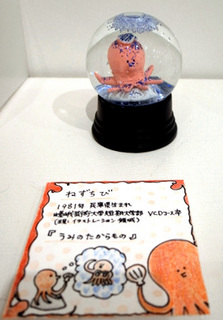 ねずちび
1981年 兵庫県生まれ
嵯峨芸術大学短期大学部 VCDコース卒
(現:イラストレーション領域)
『うみのたからもの』